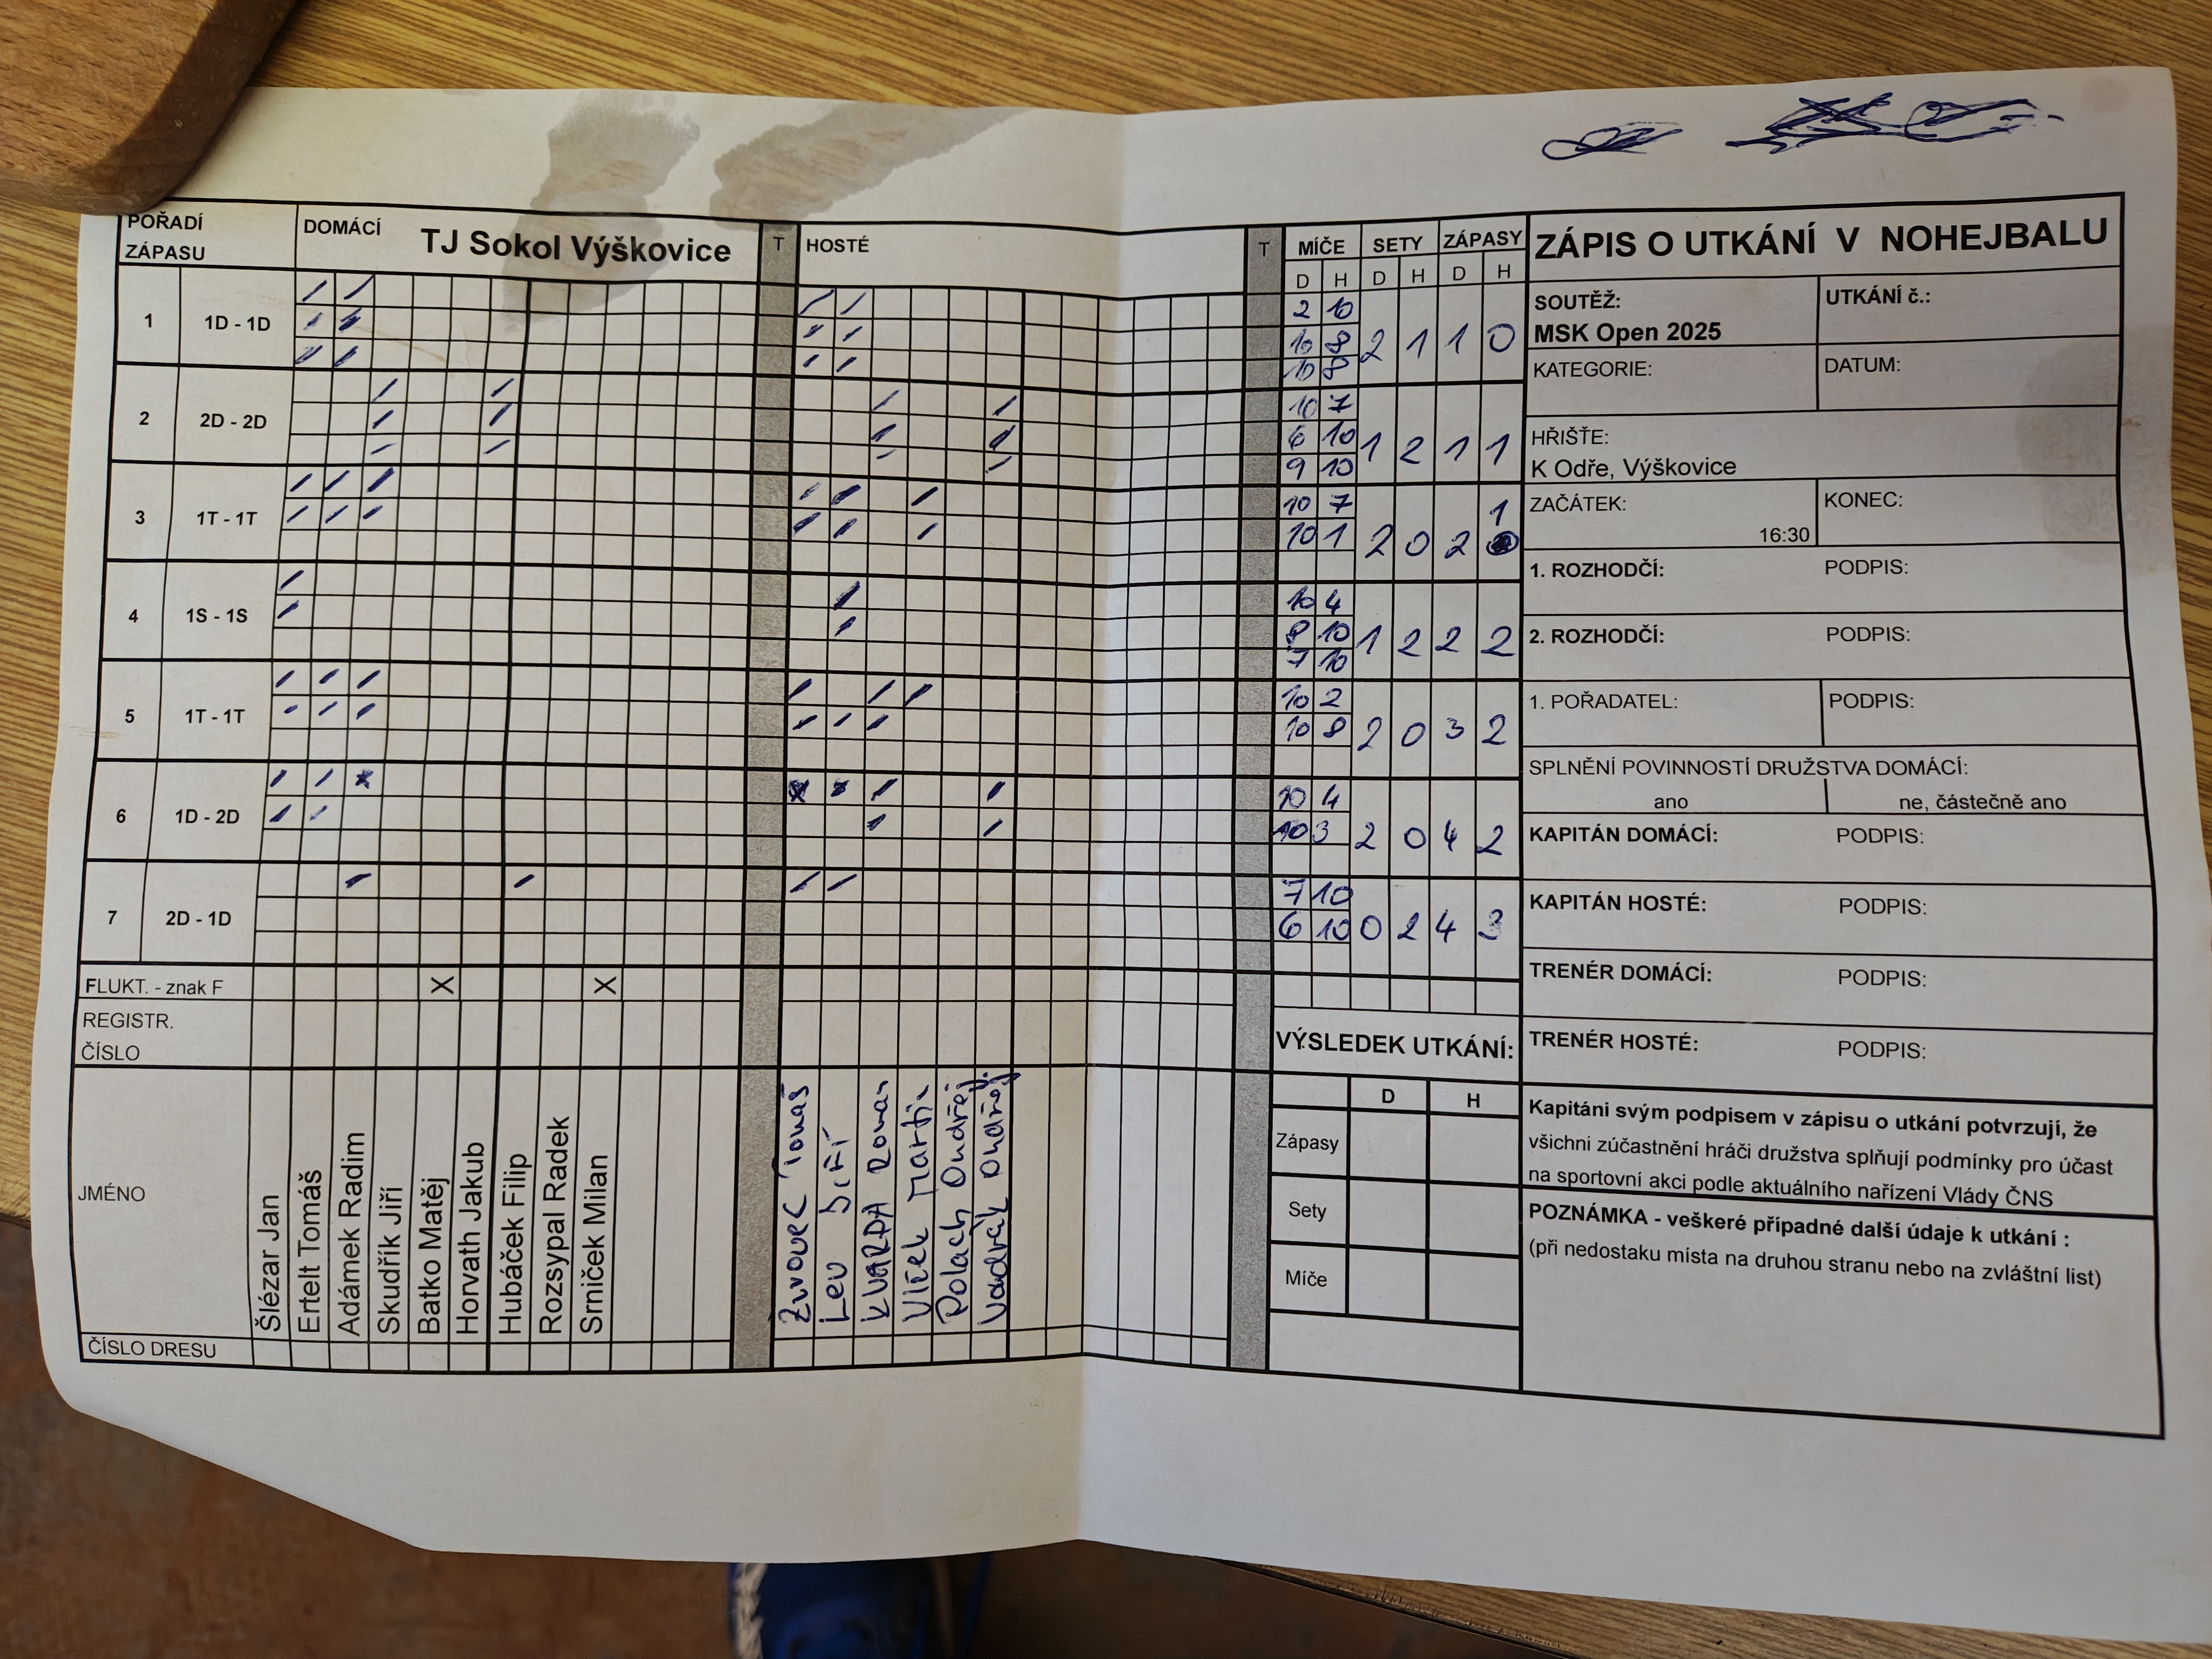 POŘADÍ ZÁPASU
DOMÁCÍ TJ Sokol Výškovice
T
HOSTÉ
T
MÍČE SETY ZÁPASY
D H D H D H
1 1D - 1D
2 10
10 8
10 8
2 1 1 0
2 2D - 2D
10 7
6 10
9 10
1 2 1 1
3 1T - 1T
10 7
10 1
2 0 2 1
4 1S - 1S
10 4
8 10
7 10
1 2 2 2
5 1T - 1T
10 2
10 8
2 0 3 2
6 1D - 2D
10 4
10 3
2 0 4 2
7 2D - 1D
7 10
6 10
0 2 4 3
FLUKT. - znak F
X X
REGISTR.
ČÍSLO
JMÉNO
Šlézar Jan
Ertelt Tomáš
Adámek Radim
Skudřík Jiří
Batko Matěj
Horvath Jakub
Hubáček Filip
Rozsypal Radek
Srniček Milan
Tomáš
Lev Jiří
KVARDA Roman
Vlček Martin
Polach Ondřej
Ondřej
ČÍSLO DRESU
VÝSLEDEK UTKÁNÍ:
D H
Zápasy
Sety
Míče
ZÁPIS O UTKÁNÍ V NOHEJBALU
SOUTĚŽ:
MSK Open 2025
UTKÁNÍ č.:
KATEGORIE:
DATUM:
HŘIŠTE:
K Odře, Výškovice
ZAČÁTEK:
16:30
KONEC:
1. ROZHODČÍ: PODPIS:
2. ROZHODČÍ: PODPIS:
1. POŘADATEL: PODPIS:
SPLNĚNÍ POVINNOSTÍ DRUŽSTVA DOMÁCÍ:
ano ne, částečně ano
KAPITÁN DOMÁCÍ: PODPIS:
KAPITÁN HOSTÉ: PODPIS:
TRENÉR DOMÁCÍ: PODPIS:
TRENÉR HOSTÉ: PODPIS:
Kapitáni svým podpisem v zápisu o utkání potvrzují, že
všichni zúčastnění hráči družstva splňují podmínky pro účast
na sportovní akci podle aktuálního nařízení Vlády ČNS
POZNÁMKA - veškeré případné další údaje k utkání :
(při nedostaku místa na druhou stranu nebo na zvláštní list)